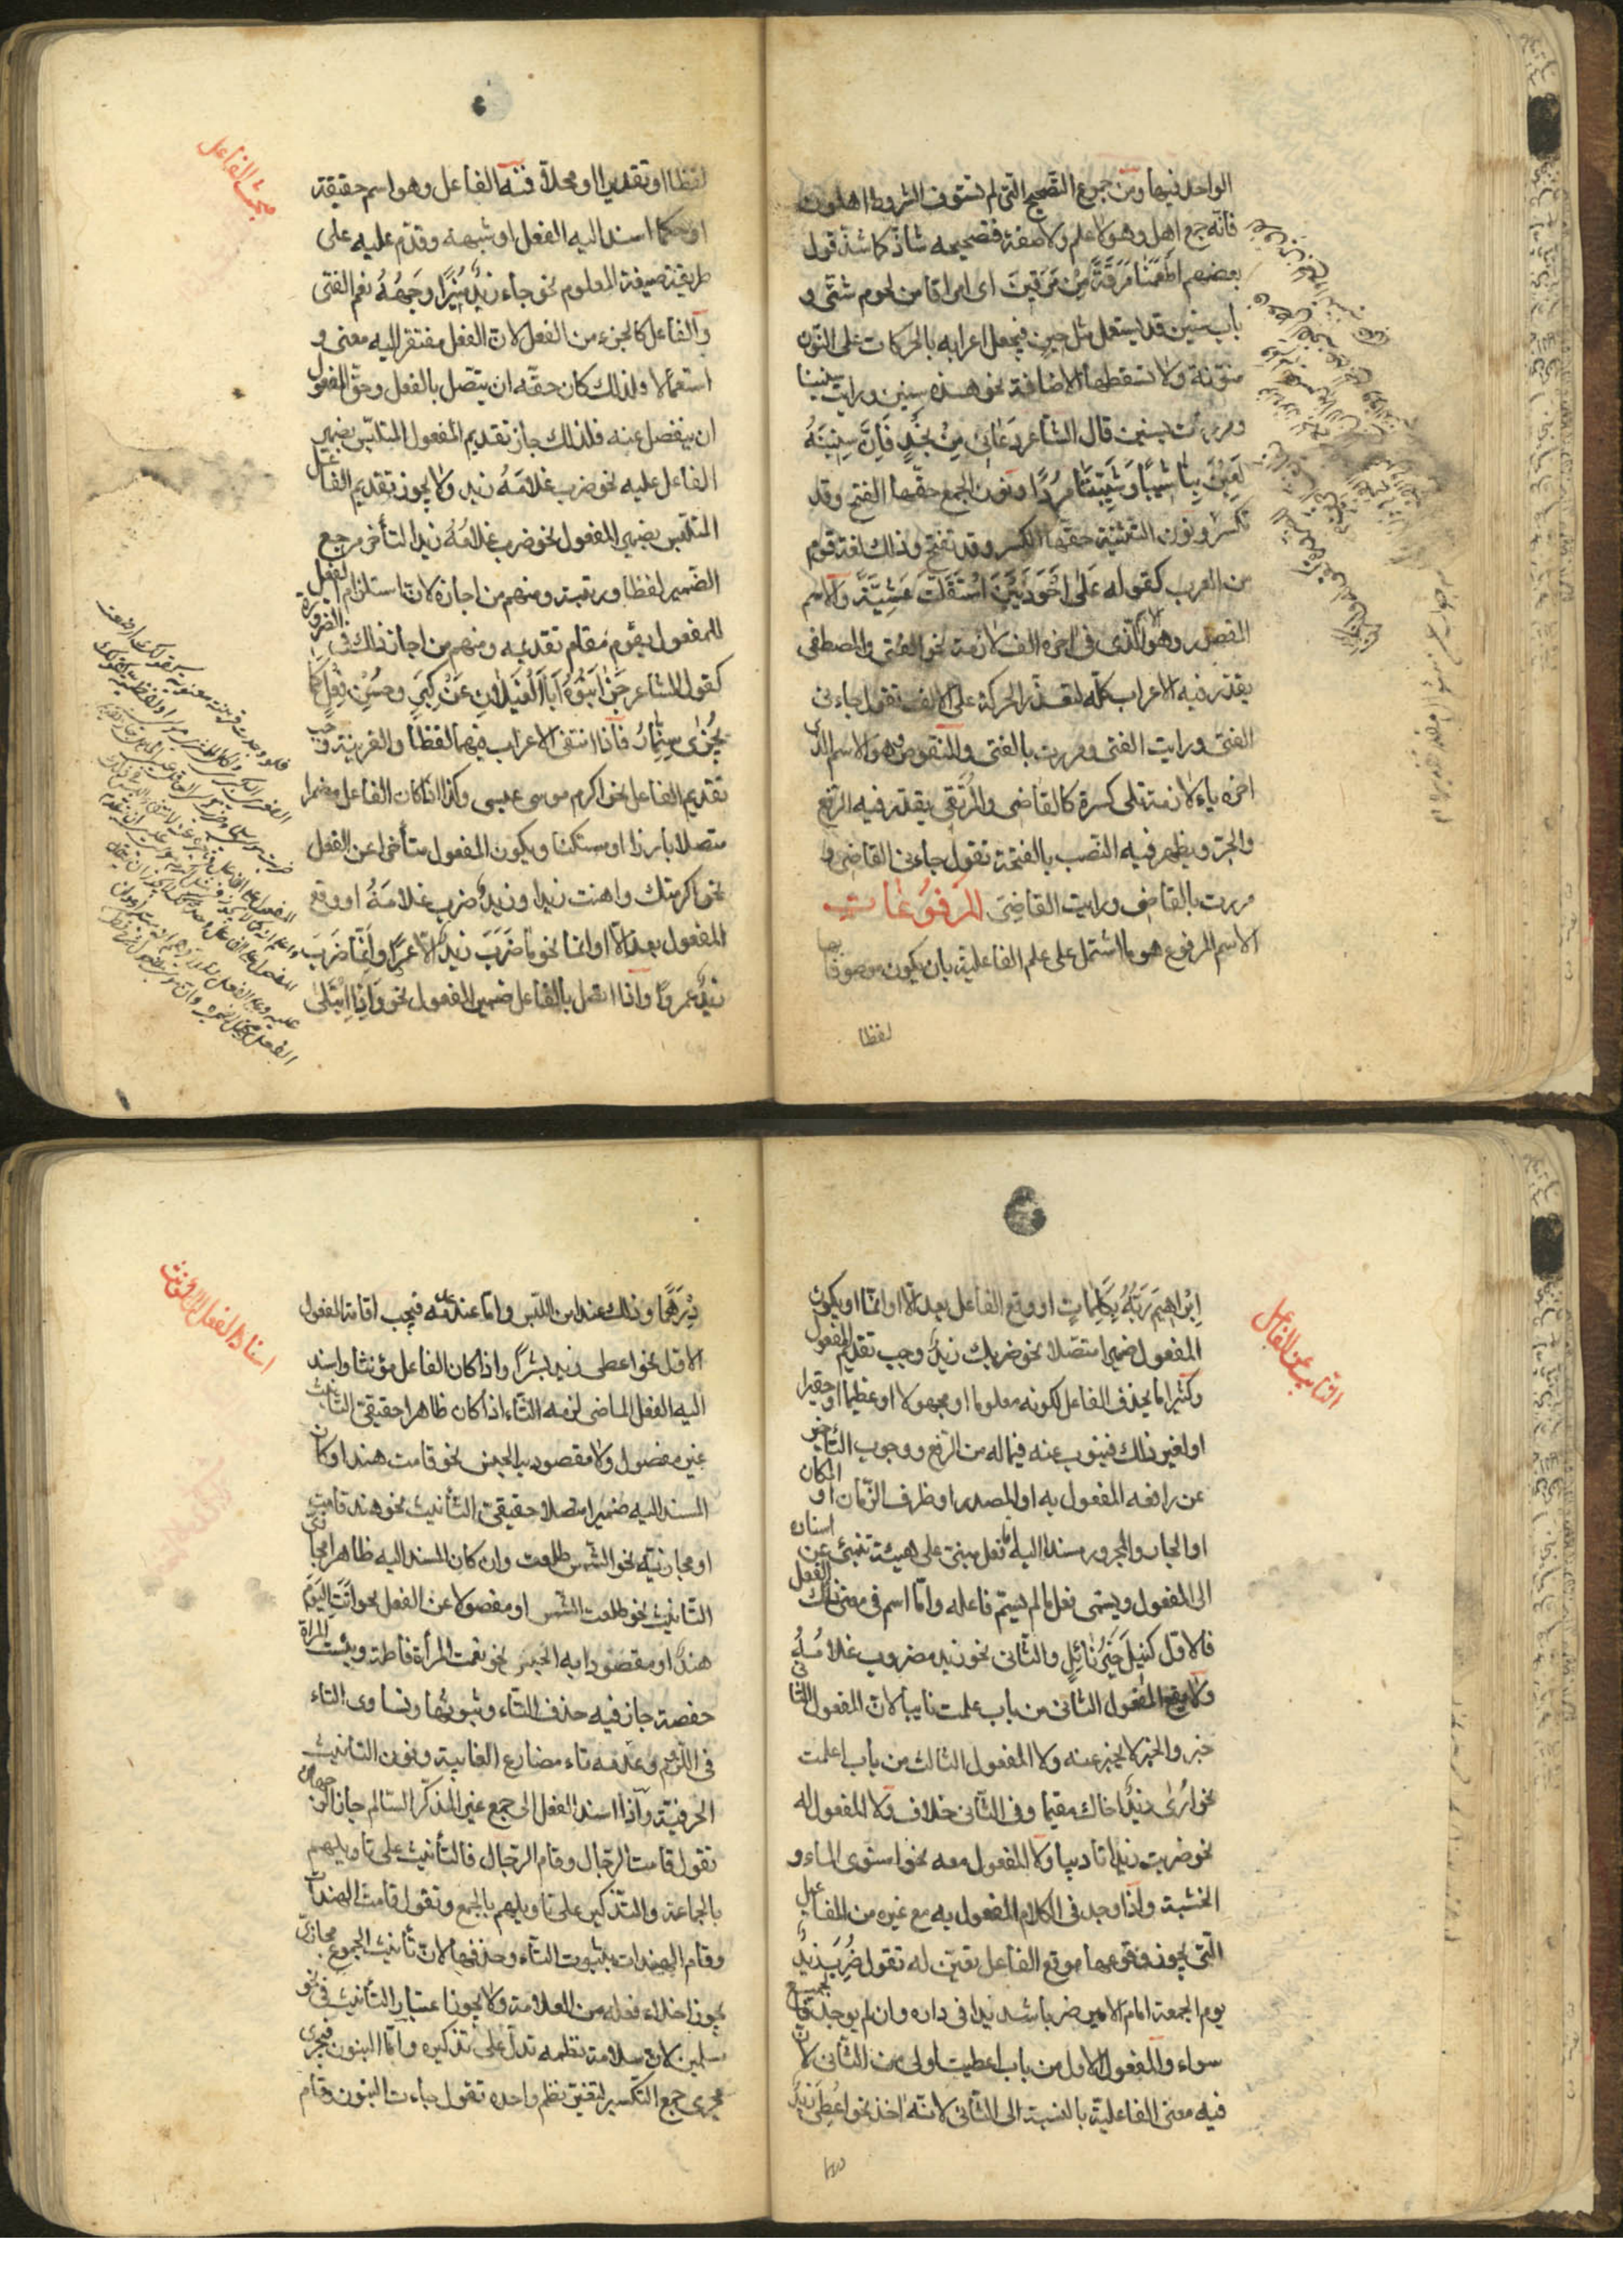 الواحد فيها ومن جموع التصحيح التي لم تستوف الشروط اهلون
فانه جمع اهل وهو لا علم ولا صفة فتصحيحه شاذ كما شذ قول
بعضهم اطعمنا مرقة من مرقين اى امراقا من لحوم شتى و
باب سنين قد يستعمل مثل حين فيجعل اعرابه بالحركات على النون
منونة ولا تسقطها الاضافة نحو هذه سنين ورايت سنينا
ومررت بسنين قال الشاعر دعانى من نجد فان سنينه
لعبن بنا شيبا وشيبننا مردا ونون الجمع حقها الفتح وقد
تكسر ونون التثنية حقها الكسر وقد تفتح وذلك لغة قوم
من العرب كقوله على احوذيين استقلت عشية والاسم
المقصور وهو الذى فى اخره الف لازمة نحو الفتى والمصطفى
يقدر فيه الاعراب كله لتعذر الحركة على الالف تقول جاءنى
الفتى ورايت الفتى ومررت بالفتى والمنقوص وهو الاسم الذى
اخره ياء لازمة تلى كسرة كالقاضى والمرتقى يقدر فيه الرفع
والجر ويظهر فيه النصب بالفتحة تقول جاءنى القاضى و
مررت بالقاضى ورايت القاضى المرفوعات
الاسم المرفوع هو ما اشتمل على علم الفاعلية بان يكون موصوفا بها
لفظا
مبحث الفاعل
لفظا او تقديرا او محلا فمنه الفاعل وهو اسم حقيقة
او حكما اسند اليه الفعل او شبهه وقدم عليه على
طريقة صيغة المعلوم نحو جاء زيد منيرا وجهه نعم الفتى
والفاعل كالجزء من الفعل لان الفعل مفتقر اليه معنى و
استعمالا ولذلك كان حقه ان يتصل بالفعل وحق المفعول
ان ينفصل عنه فلذلك جاز تقديم المفعول المتلبس بضمير
الفاعل عليه نحو ضرب غلامه زيد ولا يجوز تقديم الفاعل
المتلبس بضمير المفعول نحو ضرب غلامه زيدا لتأخر مرجع
الضمير لفظا ورتبة ومنهم من اجازه لان استلزام الفعل
للمفعول يقوم مقام تقديمه ومنهم من اجاز ذلك فى الضرورة
كقول الشاعر جزى بنوه ابا الغيلان عن كبر وحسن فعل كما
يجزى سنمار فاذا انتفى الاعراب فيهما لفظا والقرينة وجب
تقديم الفاعل نحو اكرم موسى عيسى وكذا اذا كان الفاعل مضمرا
متصلا بارزا او مستكنا ويكون المفعول متأخرا عن الفعل
نحو اكرمتك واهنت زيدا وزيد ضرب غلامه او وقع
المفعول بعد الا او انما نحو ما ضرب زيد الا عمرا وانما ضرب
زيد عمروا واذا اتصل بالفاعل ضمير المفعول نحو واذ ابتلى
النائب عن الفاعل
ابراهيم ربه بكلمات او وقع الفاعل بعد الا او انما او يكون
المفعول ضميرا متصلا نحو ضربك زيد وجب تقديم المفعول
وكثيرا ما يحذف الفاعل لكونه معلوما او مجهولا او عظيما او حقيرا
او لغير ذلك فينوب عنه فيما له من الرفع ووجوب التأخير
عن رافعه المفعول به او المصدر او ظرف الزمان او المكان
او الجار والمجرور مسندا اليه اما فعل مبنى على هيئة تنبئ عن اسناده
الى المفعول ويسمى فعل ما لم يسم فاعله واما اسم فى معنى ذلك الفعل
فالاول كنيل خير نائل والثانى نحو زيد مضروب غلامه
ولا يقع المفعول الثانى من باب علمت نايبا لان المفعول الثانى
خبر والخبر لا يخبر عنه ولا المفعول الثالث من باب اعلمت
نحو ارى زيد اخاك مقيما وفى الثانى خلاف ولا المفعول له
نحو ضربت زيدا تاديبا ولا المفعول معه نحو استوى الماء و
الخشبة واذا وجد فى الكلام المفعول به مع غيره من المفاعيل
التى يجوز وقوعها موقع الفاعل تعين له تقول ضرب زيد
يوم الجمعة امام الامير ضربا شديدا فى داره وان لم يوجد فالجميع
سواء والمفعول الاول من باب اعطيت اولى من الثانى لان
فيه معنى الفاعلية بالنسبة الى الثانى لانه اخذ نحو اعطى زيد
اسناد الفعل الى المؤنث
درهما وذلك عند امن اللبس واما عند عدمه فيجب اقامة المفعول
الاول نحو اعطى زيد بشرا واذا كان الفاعل مؤنثا واسند
اليه الفعل الماضى لزمه التاء اذا كان ظاهرا حقيقى التأنيث
غير مفصول ولا مقصود به الجنس نحو قامت هند او كان
المسند اليه ضميرا متصلا حقيقى التأنيث نحو هند قامت
او مجازيه نحو الشمس طلعت وان كان المسند اليه ظاهرا مجازى
التانيث نحو طلعت الشمس او مفصولا عن الفعل نحو اتت اليوم
هند او مقصودا به الجنس نحو نعمت المرأة فاطمة وبئست المراة
حفصة جاز فيه حذف التاء وثبوتها وتساوى التاء
فى اللزوم وعدمه تاء مضارع الغايبة ونون التانيث
الحرفية واذا اسند الفعل الى جمع غير المذكر السالم جاز الوجهان
تقول قامت الرجال وقام الرجال فالتأنيث على تاويلهم
بالجماعة والتذكير على تاويلهم بالجمع وتقول قامت الهندات
وقام الهندات بثبوت التاء وحذفها لان تأنيث الجموع مجازى
يجوز اخلاء فعله من العلامة ولا يجوز اعتبار التأنيث فى نحو
مسلمين لان سلامة نظمه تدل على تذكيره واما البنون فيجرى
مجرى جمع التكسير لتغير نظم واحده تقول جاءت البنون وقام